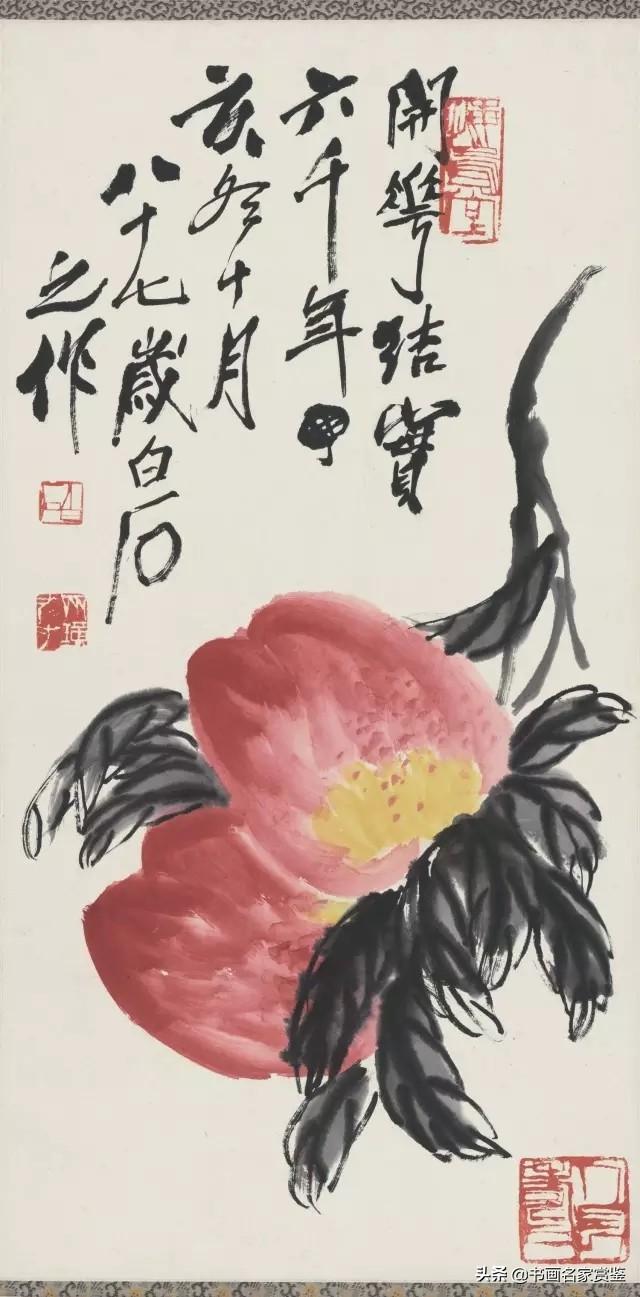 開華結實
六千年
亥冬十月
八十七歲白石
之作
悔烏堂
头条 @书画名家赏鉴